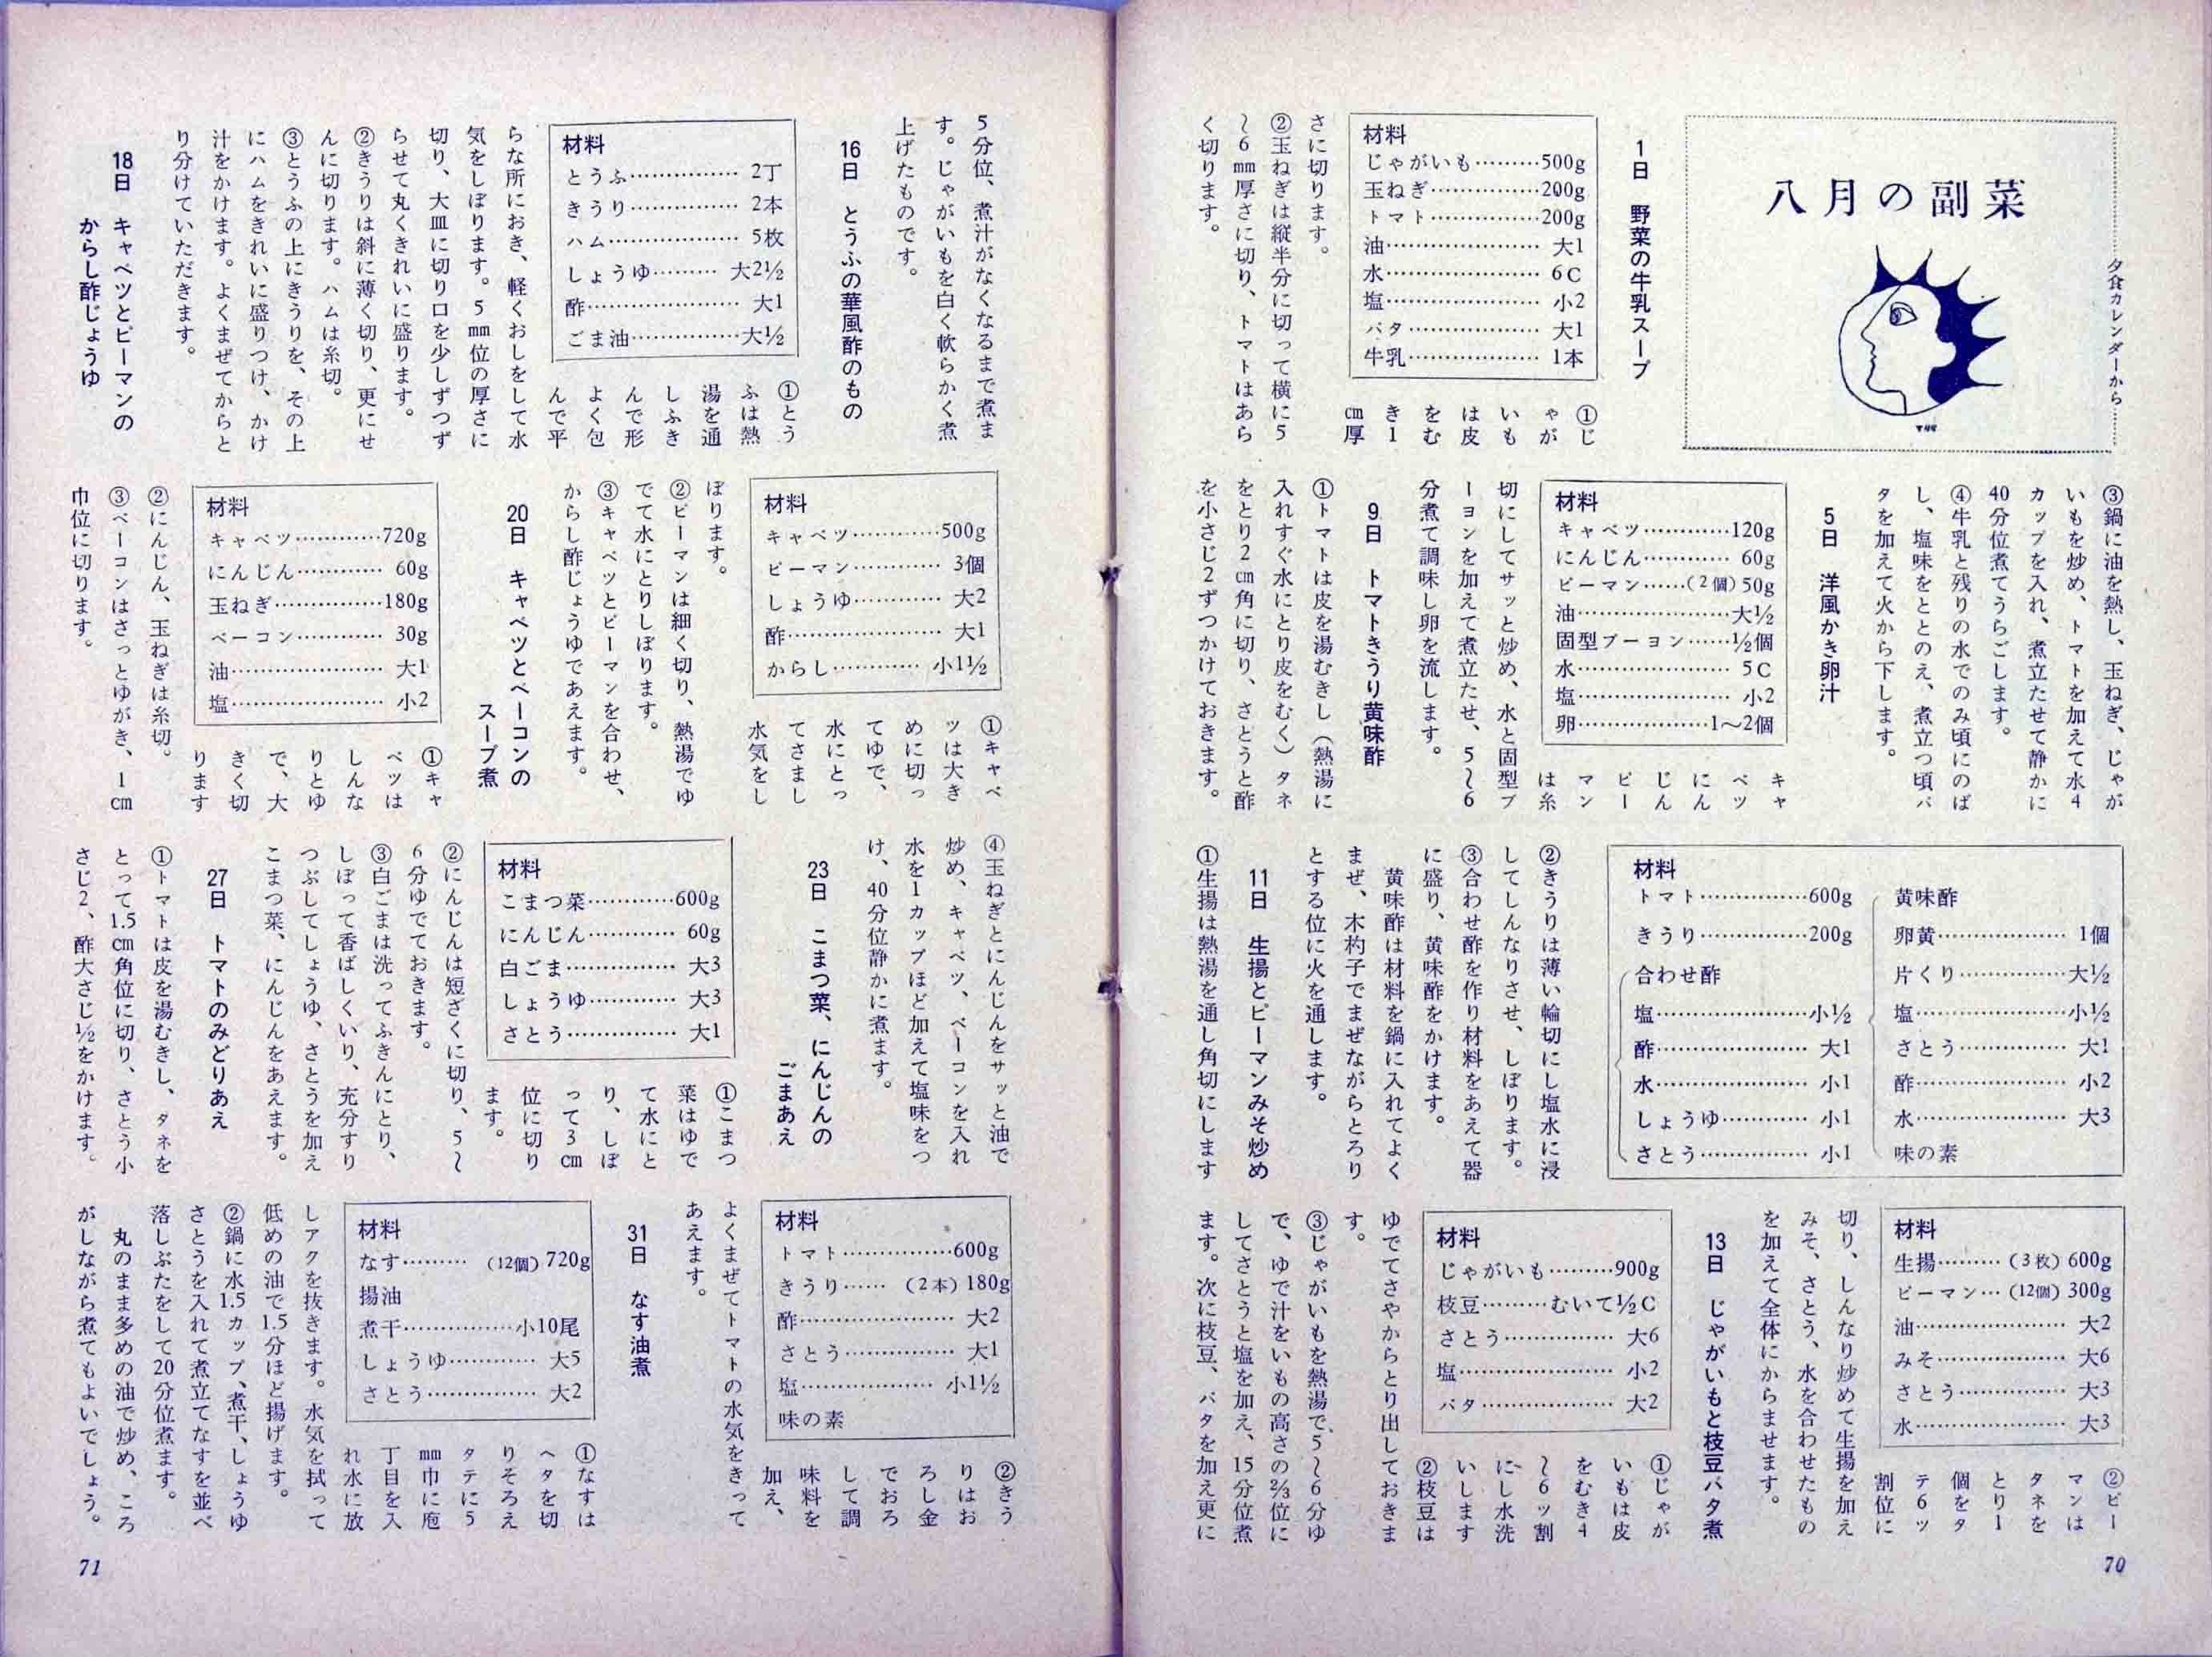 八月の副菜
夕食カレンダーから
1日　野菜の牛乳スープ
材料
じゃがいも………500g
玉ねぎ……………200g
トマト……………200g
油…………………大1
水…………………6C
塩…………………小2
バタ………………大1
牛乳………………1本
①じ
ゃが
いも
は皮
をむ
き1
cm厚
さに切ります。
②玉ねぎは縦半分に切って横に5
〜6mm厚さに切り、トマトはあら
く切ります。
③鍋に油を熱し、玉ねぎ、じゃが
いもを炒め、トマトを加えて水4
カップを入れ、煮立たせて静かに
40分位煮てうらごします。
④牛乳と残りの水でのみ頃にのば
し、塩味をととのえ、煮立つ頃バ
タを加えて火から下します。
5日　洋風かき卵汁
材料
キャベツ…………120g
にんじん…………60g
ピーマン……(2個)50g
油…………………大½
固型ブーヨン……½個
水…………………5C
塩…………………小2
卵………………1〜2個
キャ
ベツ
にん
じん
ピー
マン
は糸
切にしてサッと炒め、水と固型ブ
ーヨンを加えて煮立たせ、5〜6
分煮て調味し卵を流します。
9日　トマトきうり黄味酢
①トマトは皮を湯むきし（熱湯に
入れすぐ水にとり皮をむく）タネ
をとり2cm角に切り、さとうと酢
を小さじ2ずつかけておきます。
材料
トマト……………600g
きうり……………200g
合わせ酢
塩…………………小½
酢…………………大1
水…………………小1
しょうゆ…………小1
さとう……………小1
黄味酢
卵黄………………1個
片くり……………大½
塩…………………小½
さとう……………大1
酢…………………小2
水…………………大3
味の素
②きうりは薄い輪切にし塩水に浸
してしんなりさせ、しぼります。
③合わせ酢を作り材料をあえて器
に盛り、黄味酢をかけます。
黄味酢は材料を鍋に入れてよく
まぜ、木杓子でまぜながらとろり
とする位に火を通します。
11日　生揚とピーマンみそ炒め
①生揚は熱湯を通し角切にします
材料
生揚………(3枚)600g
ピーマン…(12個)300g
油…………………大2
みそ………………大6
さとう……………大3
水…………………大3
②ピー
マンは
タネを
とり1
個をタ
テ6ツ
割位に
切り、しんなり炒めて生揚を加え
みそ、さとう、水を合わせたもの
を加えて全体にからませます。
13日　じゃがいもと枝豆バタ煮
材料
じゃがいも………900g
枝豆………むいて½C
さとう……………大6
塩…………………小2
バタ………………大2
①じゃが
いもは皮
をむき4
〜6ッ割
にし水洗
いします
②枝豆は
ゆでてさやからとり出しておきま
す。
③じゃがいもを熱湯で、5〜6分ゆ
で、ゆで汁をいもの高さの⅔位に
してさとうと塩を加え、15分位煮
ます。次に枝豆、バタを加え更に
70
5分位、煮汁がなくなるまで煮ま
す。じゃがいもを白く軟らかく煮
上げたものです。
16日　とうふの華風酢のもの
材料
とうふ……………2丁
きうり……………2本
ハム………………5枚
しょうゆ………大2½
酢…………………大1
ごま油……………大½
①とう
ふは熱
湯を通
しふき
んで形
よく包
んで平
らな所におき、軽くおしをして水
気をしぼります。5mm位の厚さに
切り、大皿に切り口を少しずつず
らせて丸くきれいに盛ります。
②きうりは斜に薄く切り、更にせ
んに切ります。ハムは糸切。
③とうふの上にきうりを、その上
にハムをきれいに盛りつけ、かけ
汁をかけます。よくまぜてからと
り分けていただきます。
18日　キャベツとピーマンの
からし酢じょうゆ
材料
キャベツ…………500g
ピーマン…………3個
しょうゆ…………大2
酢…………………大1
からし…………小1½
①キャベ
ツは大き
めに切っ
てゆで、
水にとっ
てさまし
水気をし
ぼります。
②ピーマンは細く切り、熱湯でゆ
でて水にとりしぼります。
③キャベツとピーマンを合わせ、
からし酢じょうゆであえます。
20日　キャベツとベーコンの
スープ煮
材料
キャベツ…………720g
にんじん…………60g
玉ねぎ……………180g
ベーコン…………30g
油…………………大1
塩…………………小2
①キャ
ベツは
しんな
りとゆ
で、大
きく切
ります
②にんじん、玉ねぎは糸切。
③ベーコンはさっとゆがき、1cm
巾位に切ります。
④玉ねぎとにんじんをサッと油で
炒め、キャベツ、ベーコンを入れ
水を1カップほど加えて塩味をつ
け、40分位静かに煮ます。
23日　こまつ菜、にんじんの
ごまあえ
材料
こまつ菜…………600g
にんじん…………60g
白ごま……………大3
しょうゆ…………大3
さとう……………大1
①こまつ
菜はゆで
て水にと
り、しぼ
って3cm
位に切り
ます。
②にんじんは短ざくに切り、5〜
6分ゆでておきます。
③白ごまは洗ってふきんにとり、
しぼって香ばしくいり、充分すり
つぶしてしょうゆ、さとうを加え
こまつ菜、にんじんをあえます。
27日　トマトのみどりあえ
①トマトは皮を湯むきし、タネを
とって1.5cm角位に切り、さとう小
さじ2、酢大さじ½をかけます。
材料
トマト……………600g
きうり……(2本)180g
酢…………………大2
さとう……………大1
塩………………小1½
味の素
②きう
りはお
ろし金
でおろ
して調
味料を
加え、
よくまぜてトマトの水気をきって
あえます。
31日　なす油煮
材料
なす………(12個)720g
揚油
煮干……………小10尾
しょうゆ…………大5
さとう……………大2
①なすは
ヘタを切
りそろえ
タテに5
mm巾に庖
丁目を入
れ水に放
しアクを抜きます。水気を拭って
低めの油で1.5分ほど揚げます。
②鍋に水1.5カップ、煮干、しょうゆ
さとうを入れて煮立てなすを並べ
落しぶたをして20分位煮ます。
丸のまま多めの油で炒め、ころ
がしながら煮てもよいでしょう。
71